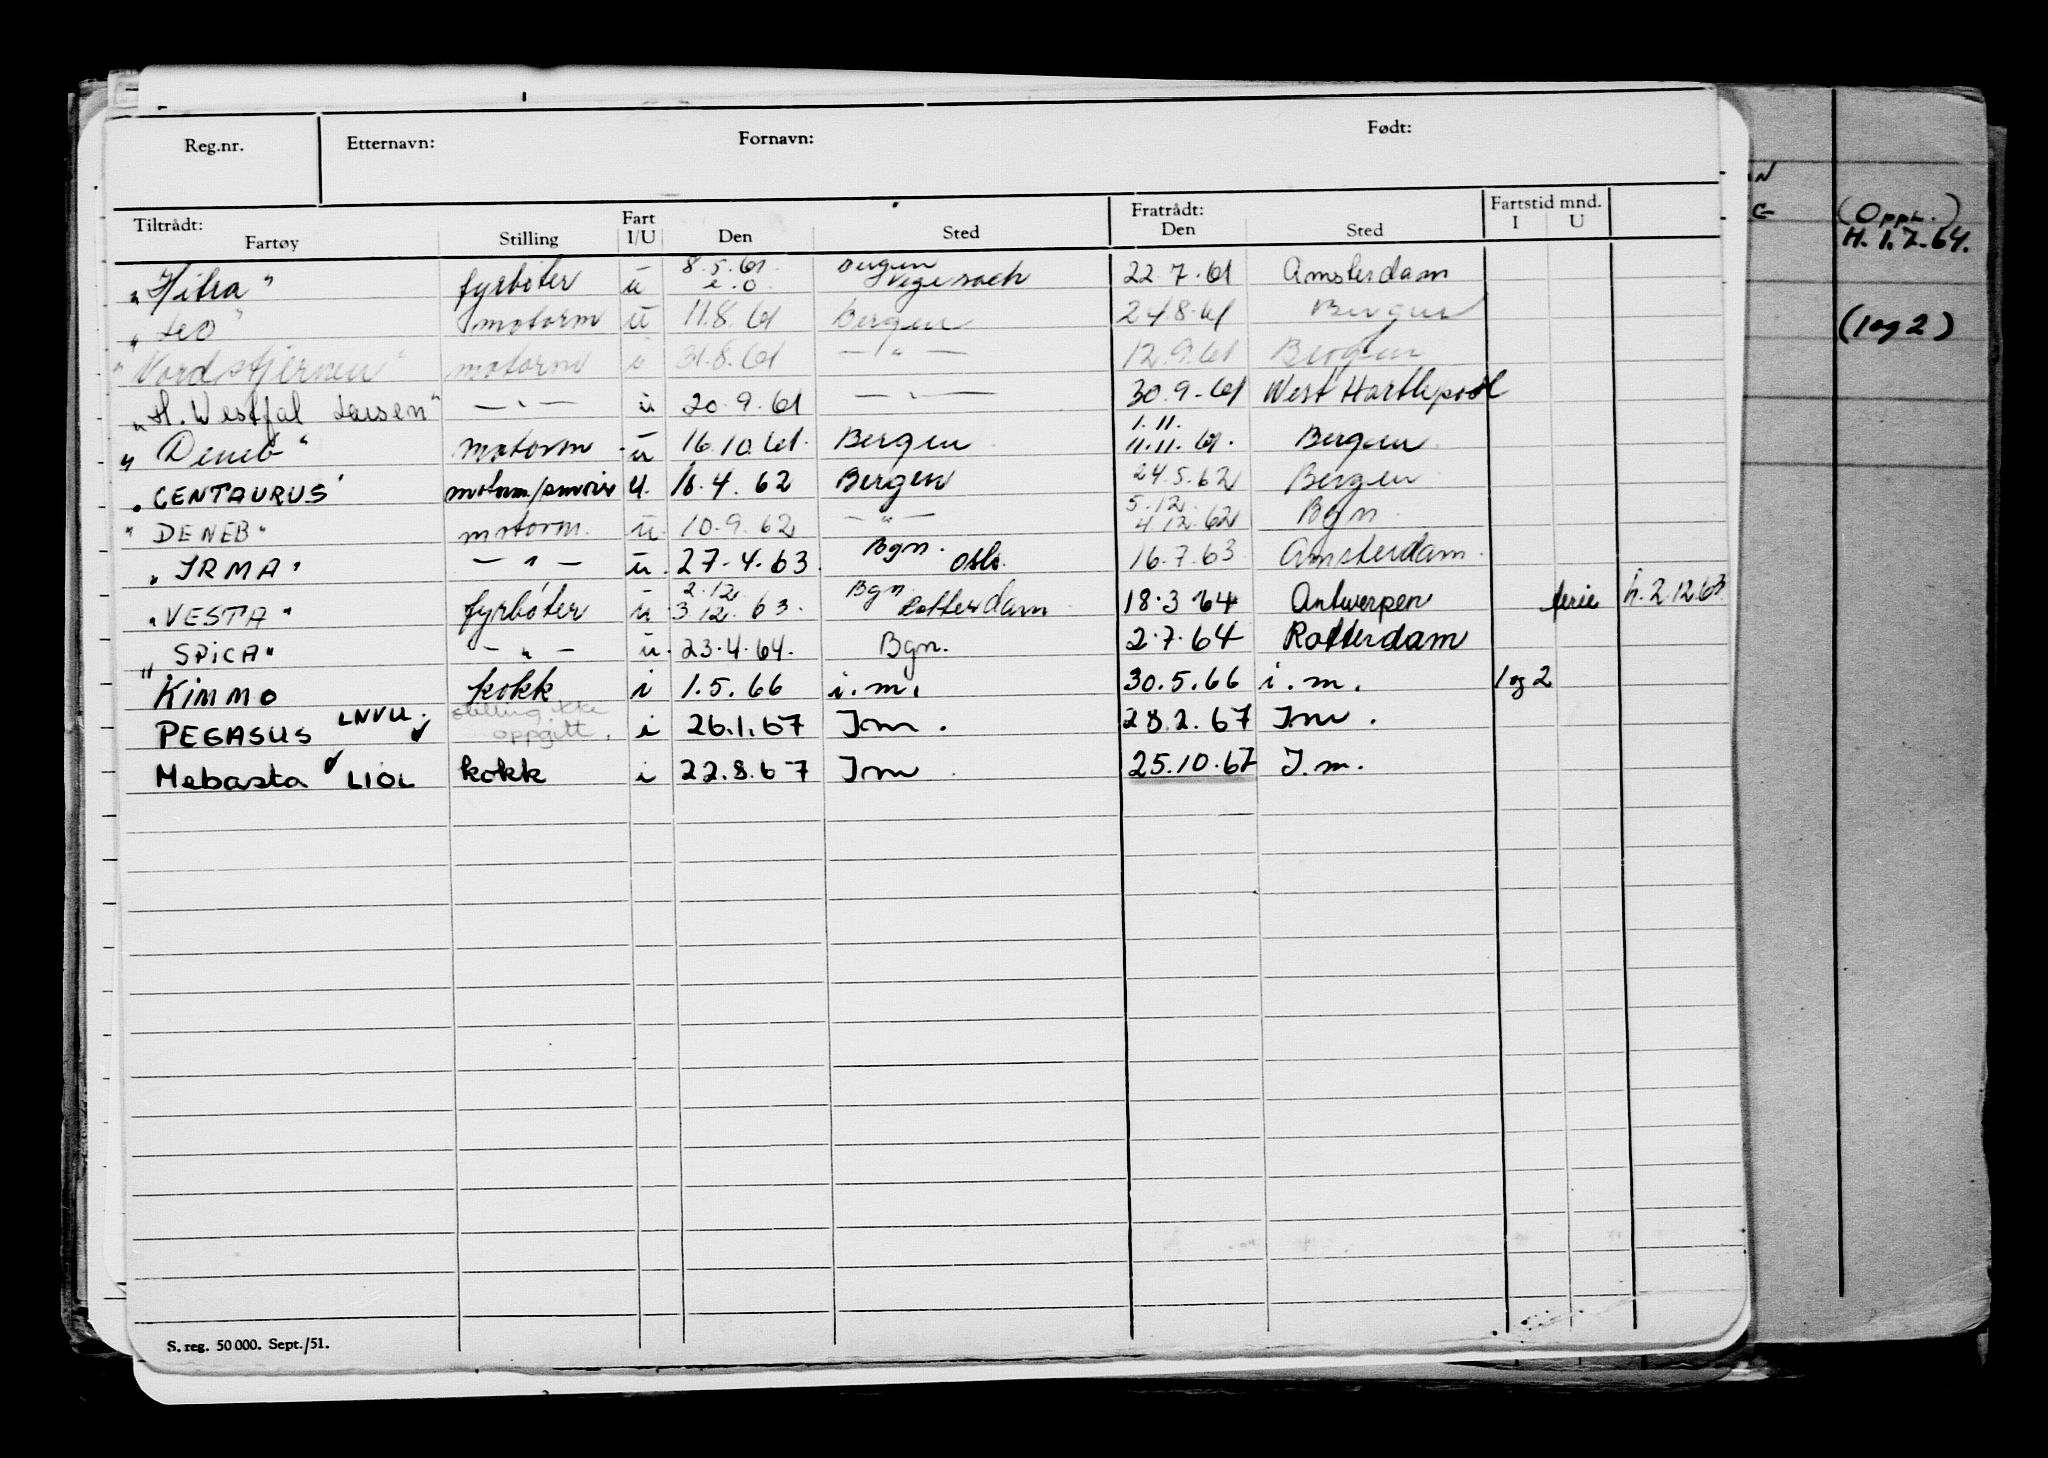 Reg.nr. Etternavn: Fornavn: Født:
Tiltrådt: Fart Fratrådt: Fartstid mnd.
Fartøy Stilling I/U Den Sted Den Sted I U
8.5.61 Bergen
"Hitra" fyrbøter u Vegesack 22.7.61 Amsterdam
"Leo" motorm u 11.8.61 Bergen 24.8.61 Bergen
"Nordstjernen" motorm u 31.8.61 — " — 12.9.61 Bergen
"H. Westfal Larsen" — " — u 20.9.61 — " — 30.9.61 West Hartlepool
1.11.
"Deneb" motorm u 16.10.61 Bergen 11.11.61. Bergen
"CENTAURUS" u. 16.4.62 Bergen 24.5.62 Bergen
5.12.
"DENEB" motorm. u. 10.9.62 — " — 4.12.62 Bgn.
"IRMA" — " — u. 27.4.63. Bgn. Oslo. 16.7.63. Amsterdam.
2.12. Bgn
"VESTA" fyrbøter u 3.12.63. Rotterdam 18.3.64 Antwerpen ferie h. 2.12.63
"SPICA" — " — u. 23.4.64. Bgn. 2.7.64 Rotterdam
KIMMO kokk i 1.5.66 i.m. 30.5.66 i.m. 1 og 2
PEGASUS LNVU. stilling ikke oppgitt. i 26.1.67 I.m. 28.2.67 I.m.
Mebasta LIOL kokk i 22.8.67 I.m. 25.10.67 I.m.
S. reg. 50 000. Sept./51.
N
G
(Oppr.)
H. 1.7.64.
(1 og 2)